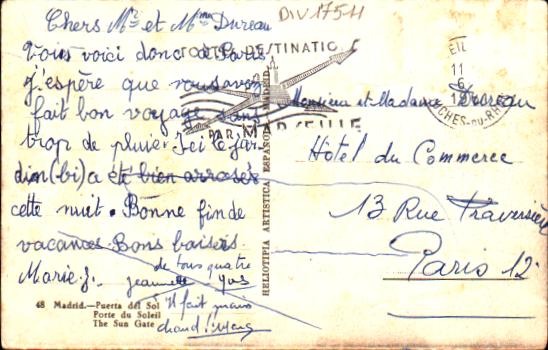 DIV 1754
Chers Mr et Mme Dureau
Vous voici donc à Paris
J'espère que vous avez
fait bon voyage sans
trop de pluie. Ici le jar
din (bi) a été bien arrosés
cette nuit. Bonne fin de
vacances. Bons baisers
Marie J.
de tous quatre
Jeannette - Yves
Il fait mais
chaud!
48 Madrid.—Puerta del Sol
Porte du Soleil
The Sun Gate
HELIOTIPIA ARTISTICA ESPAÑOLA - MADRID
TOUTES DESTINATIO
PAR MARSEILLE
11
6
CHES-DU-RH
Monsieur et Madame Dureau
Hôtel du Commerce
13 Rue Traversière
Paris 12